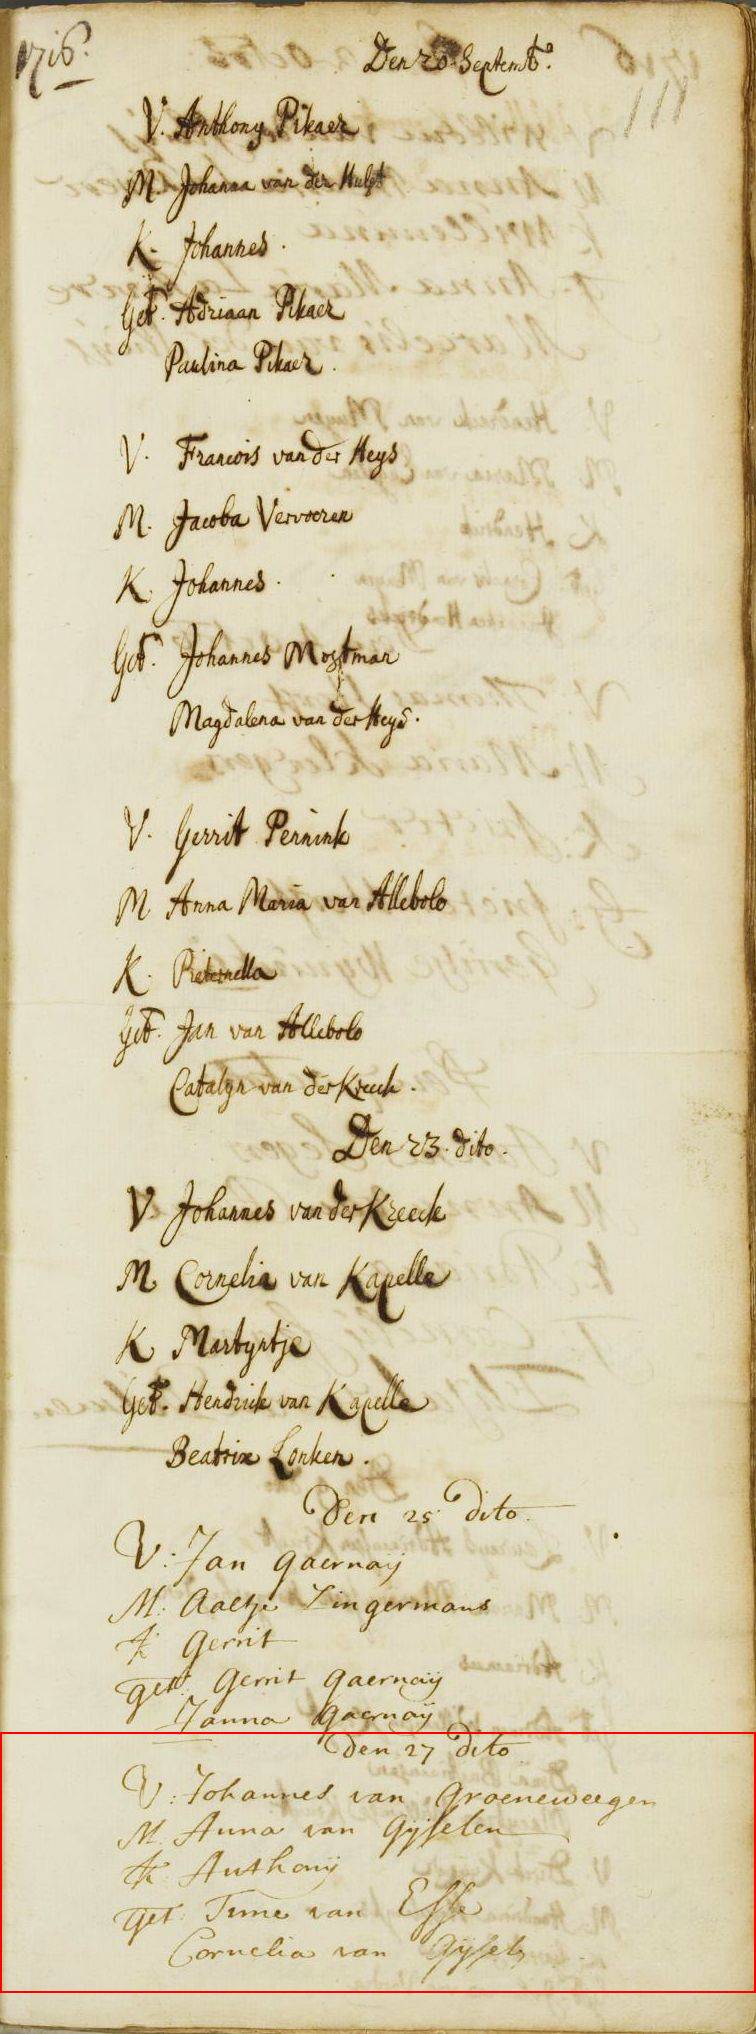 1716.
Den 20 Septemb.
111
V. Anthony Pikaer
M. Johanna van der Hulst
K. Johannes.
Get. Adriaan Pikaer
Paulina Pikaer.
V. Francois van der Heys
M. Jacoba Vervoeren
K. Johannes.
Get. Johannes Mostman
Magdalena van der Heys.
V. Gerrit Pennink
M. Anna Maria van Allebolo
K. Pieternella
Get. Jan van Allebolo
Catalyn van der Kreeck.
Den 23. dito.
V. Johannes van der Kreeck
M. Cornelia van Kapelle
K Martyntje
Get. Hendrick van Kapelle
Beatrix Lonken.
Den 25 Dito.
V: Jan gaernaij
M: Aaltje Lingermans
K Gerrit
get: Gerrit gaernaij
Janna gaernaij
Den 27 Dito
V: Johannes van groeneweegen
M. Anna van gijsselen
K: Anthonij
Get: van Esse
Cornelia van gijssels